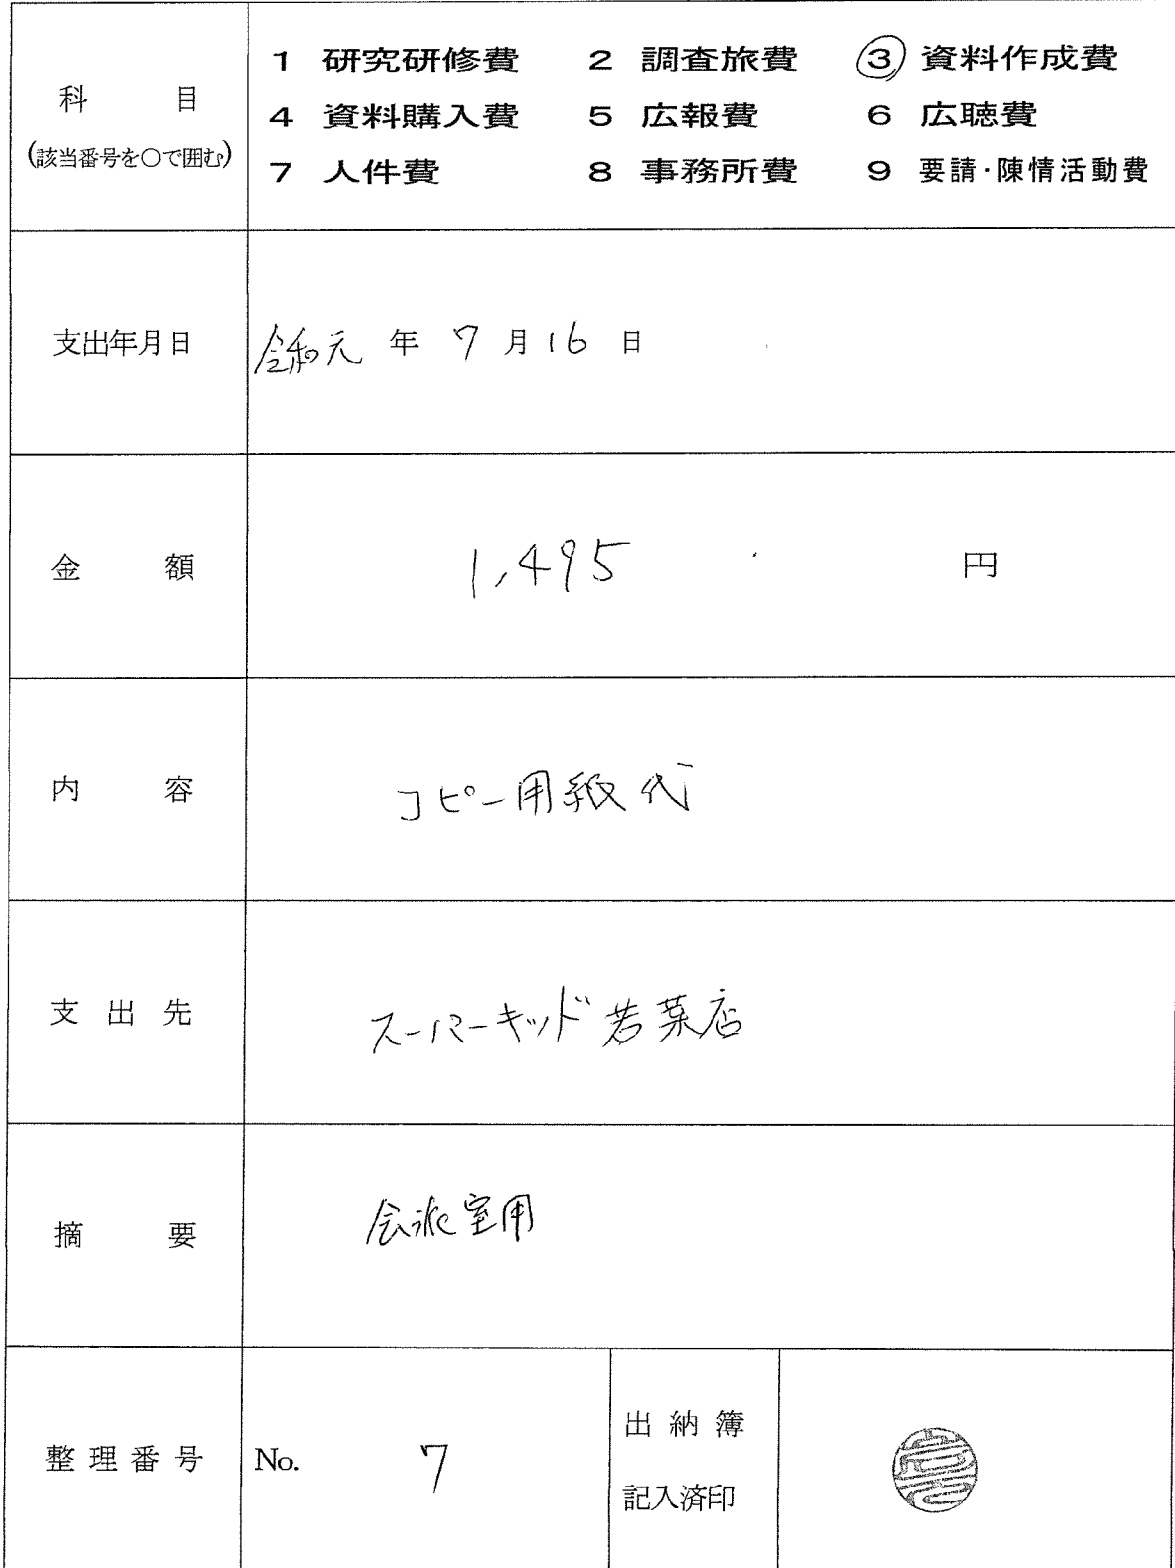 科目
(該当番号を○で囲む)
1 研究研修費 2 調査旅費 ③ 資料作成費
4 資料購入費 5 広報費 6 広聴費
7 人件費 8 事務所費 9 要請・陳情活動費
支出年月日
令和元 年 7 月 16 日
金額
1,495 円
内容
コピー用紙代
支出先
スーパーキッド若葉店
摘要
会派室用
整理番号
No. 7
出納簿
記入済印